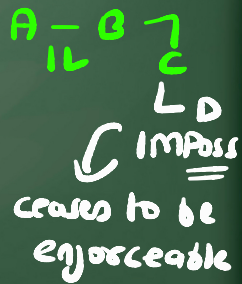 A - B
IL C
L D
Imposs
ceases to be
enforceable